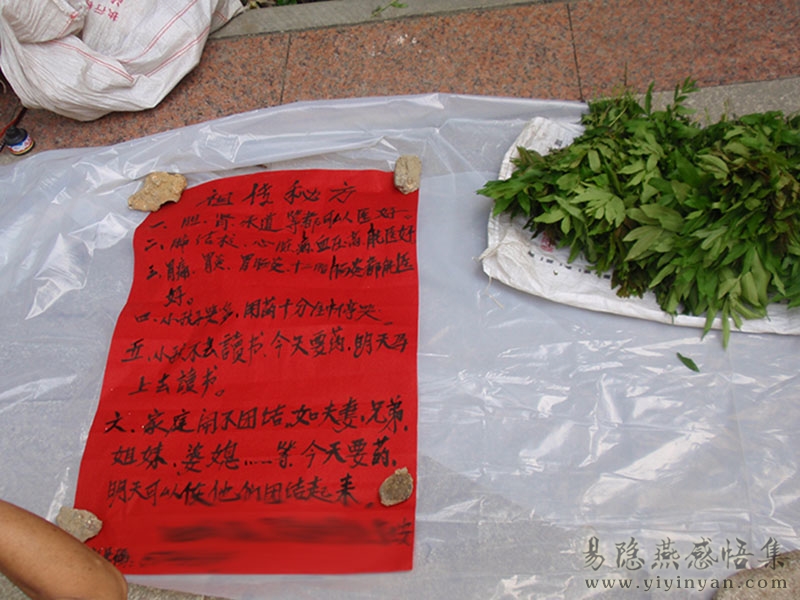 祖传秘方
一、胆、肾、尿道等都可以医好。
二、肺结核、心脏病、血压高，能医好
三、胃痛、胃炎、胃肠炎、十二指肠炎都能医
好。
四、小孩哭多，用药十分左右停哭。
五、小孩不去讀书，今天要药，明天马
上去讀书。
六、家庭闹不团结，如夫妻，兄弟，
姐妹，婆媳……等，今天要药，
明天可以使他们团结起来。
易隐燕感悟集
www.yiyinyan.com